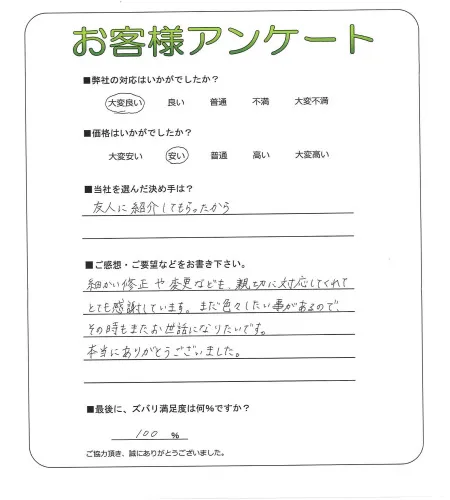 お客様アンケート
■弊社の対応はいかがでしたか?
大変良い 良い 普通 不満 大変不満
■価格はいかがでしたか?
大変安い 安い 普通 高い 大変高い
■当社を選んだ決め手は?
友人に紹介してもらったから
■ご感想・ご要望などをお書き下さい。
細かい修正や変更なども、親切に対応してくれて
とても感謝しています。まだ色々したい事があるので、
その時もまたお世話になりたいです。
本当にありがとうございました。
■最後に、ズバリ満足度は何%ですか?
100 %
ご協力頂き、誠にありがとうございました。